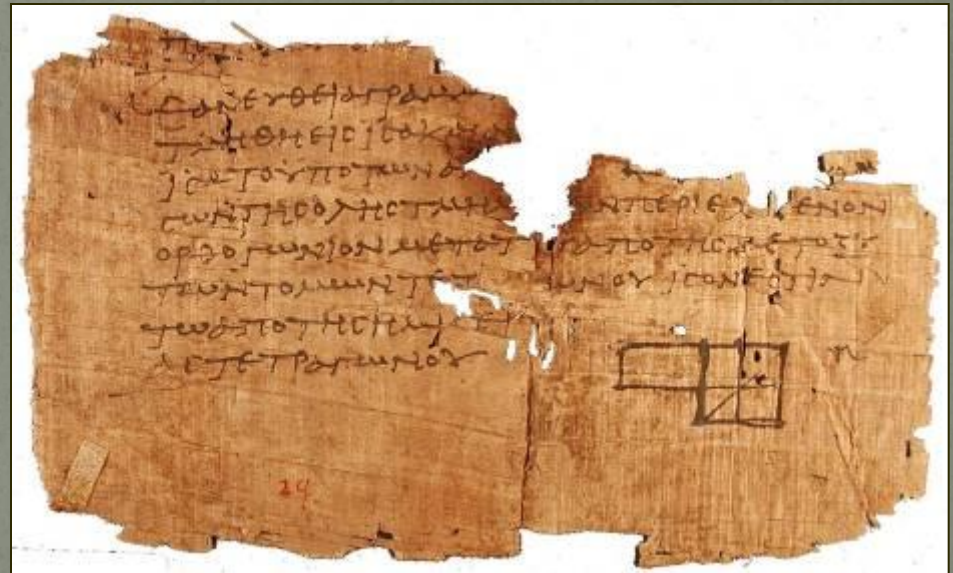 ΕΑΝ ΕΥΘΕΙΑ ΓΡΑΜΜ
ΤΜΗΘΗ ΕΙϹ ΙϹΑ Κ
ΙϹΑ ΤΟ ΥΠΟ ΤΩΝ ΑΝ
ϹΩΝ ΤΗϹ ΟΛΗϹ ΤΜΗ ΩΝ ΠΕΡΙΕΧ ΕΝΟΝ
ΟΡΘΟΓΩΝΙΟΝ ΜΕΤΑ Τ ΑΠΟ ΤΗϹ ΜΕΤΟΞΥ
ΤΩΝ ΤΟΜΩΝ ΤΕΤ ΩΝΟΥ ΙϹΟΝ ΕϹΤΙΝ
ΤΩ ΑΠΟ ΤΗϹ ΗΜΙϹΕΙ
ΑϹ ΤΕΤΡΑΓΩΝΟΥ